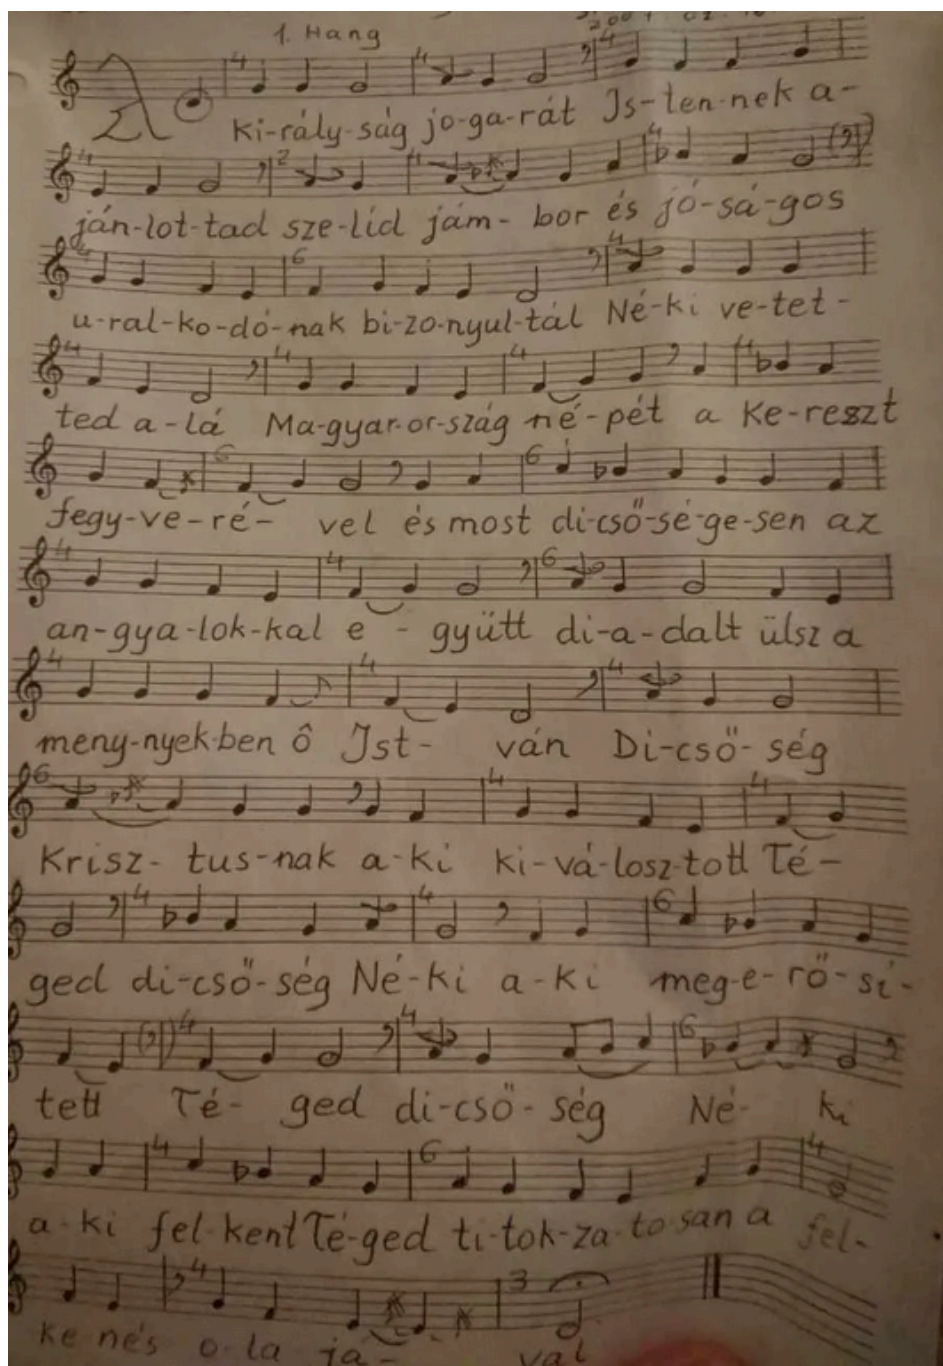 1. Hang
A Ki-rály-ság jo-ga-rát Is-ten-nek a-
ján-lot-tad sze-líd jám- bor és jó-sá-gos
u-ral-ko-dó-nak bi-zo-nyul-tál Né-ki ve-tet-
ted a-lá Ma-gyar-or-szág né-pét a Ke-reszt
fegy-ve-ré- vel és most di-cső-sé-ge-sen az
an-gya-lok-kal e - gyütt di-a-dalt ülsz a
meny-nyek-ben ô Ist- ván Di-cső-ség
Krisz- tus-nak a-ki ki-vá-losz-tott Té-
ged di-cső-ség Né-ki a-ki meg-e-rő-sí-
tett Té- ged di-cső-ség Né- ki
a-ki fel-kent Té-ged ti-tok-za-to-san a fel-
ke-nés o-la-já- val